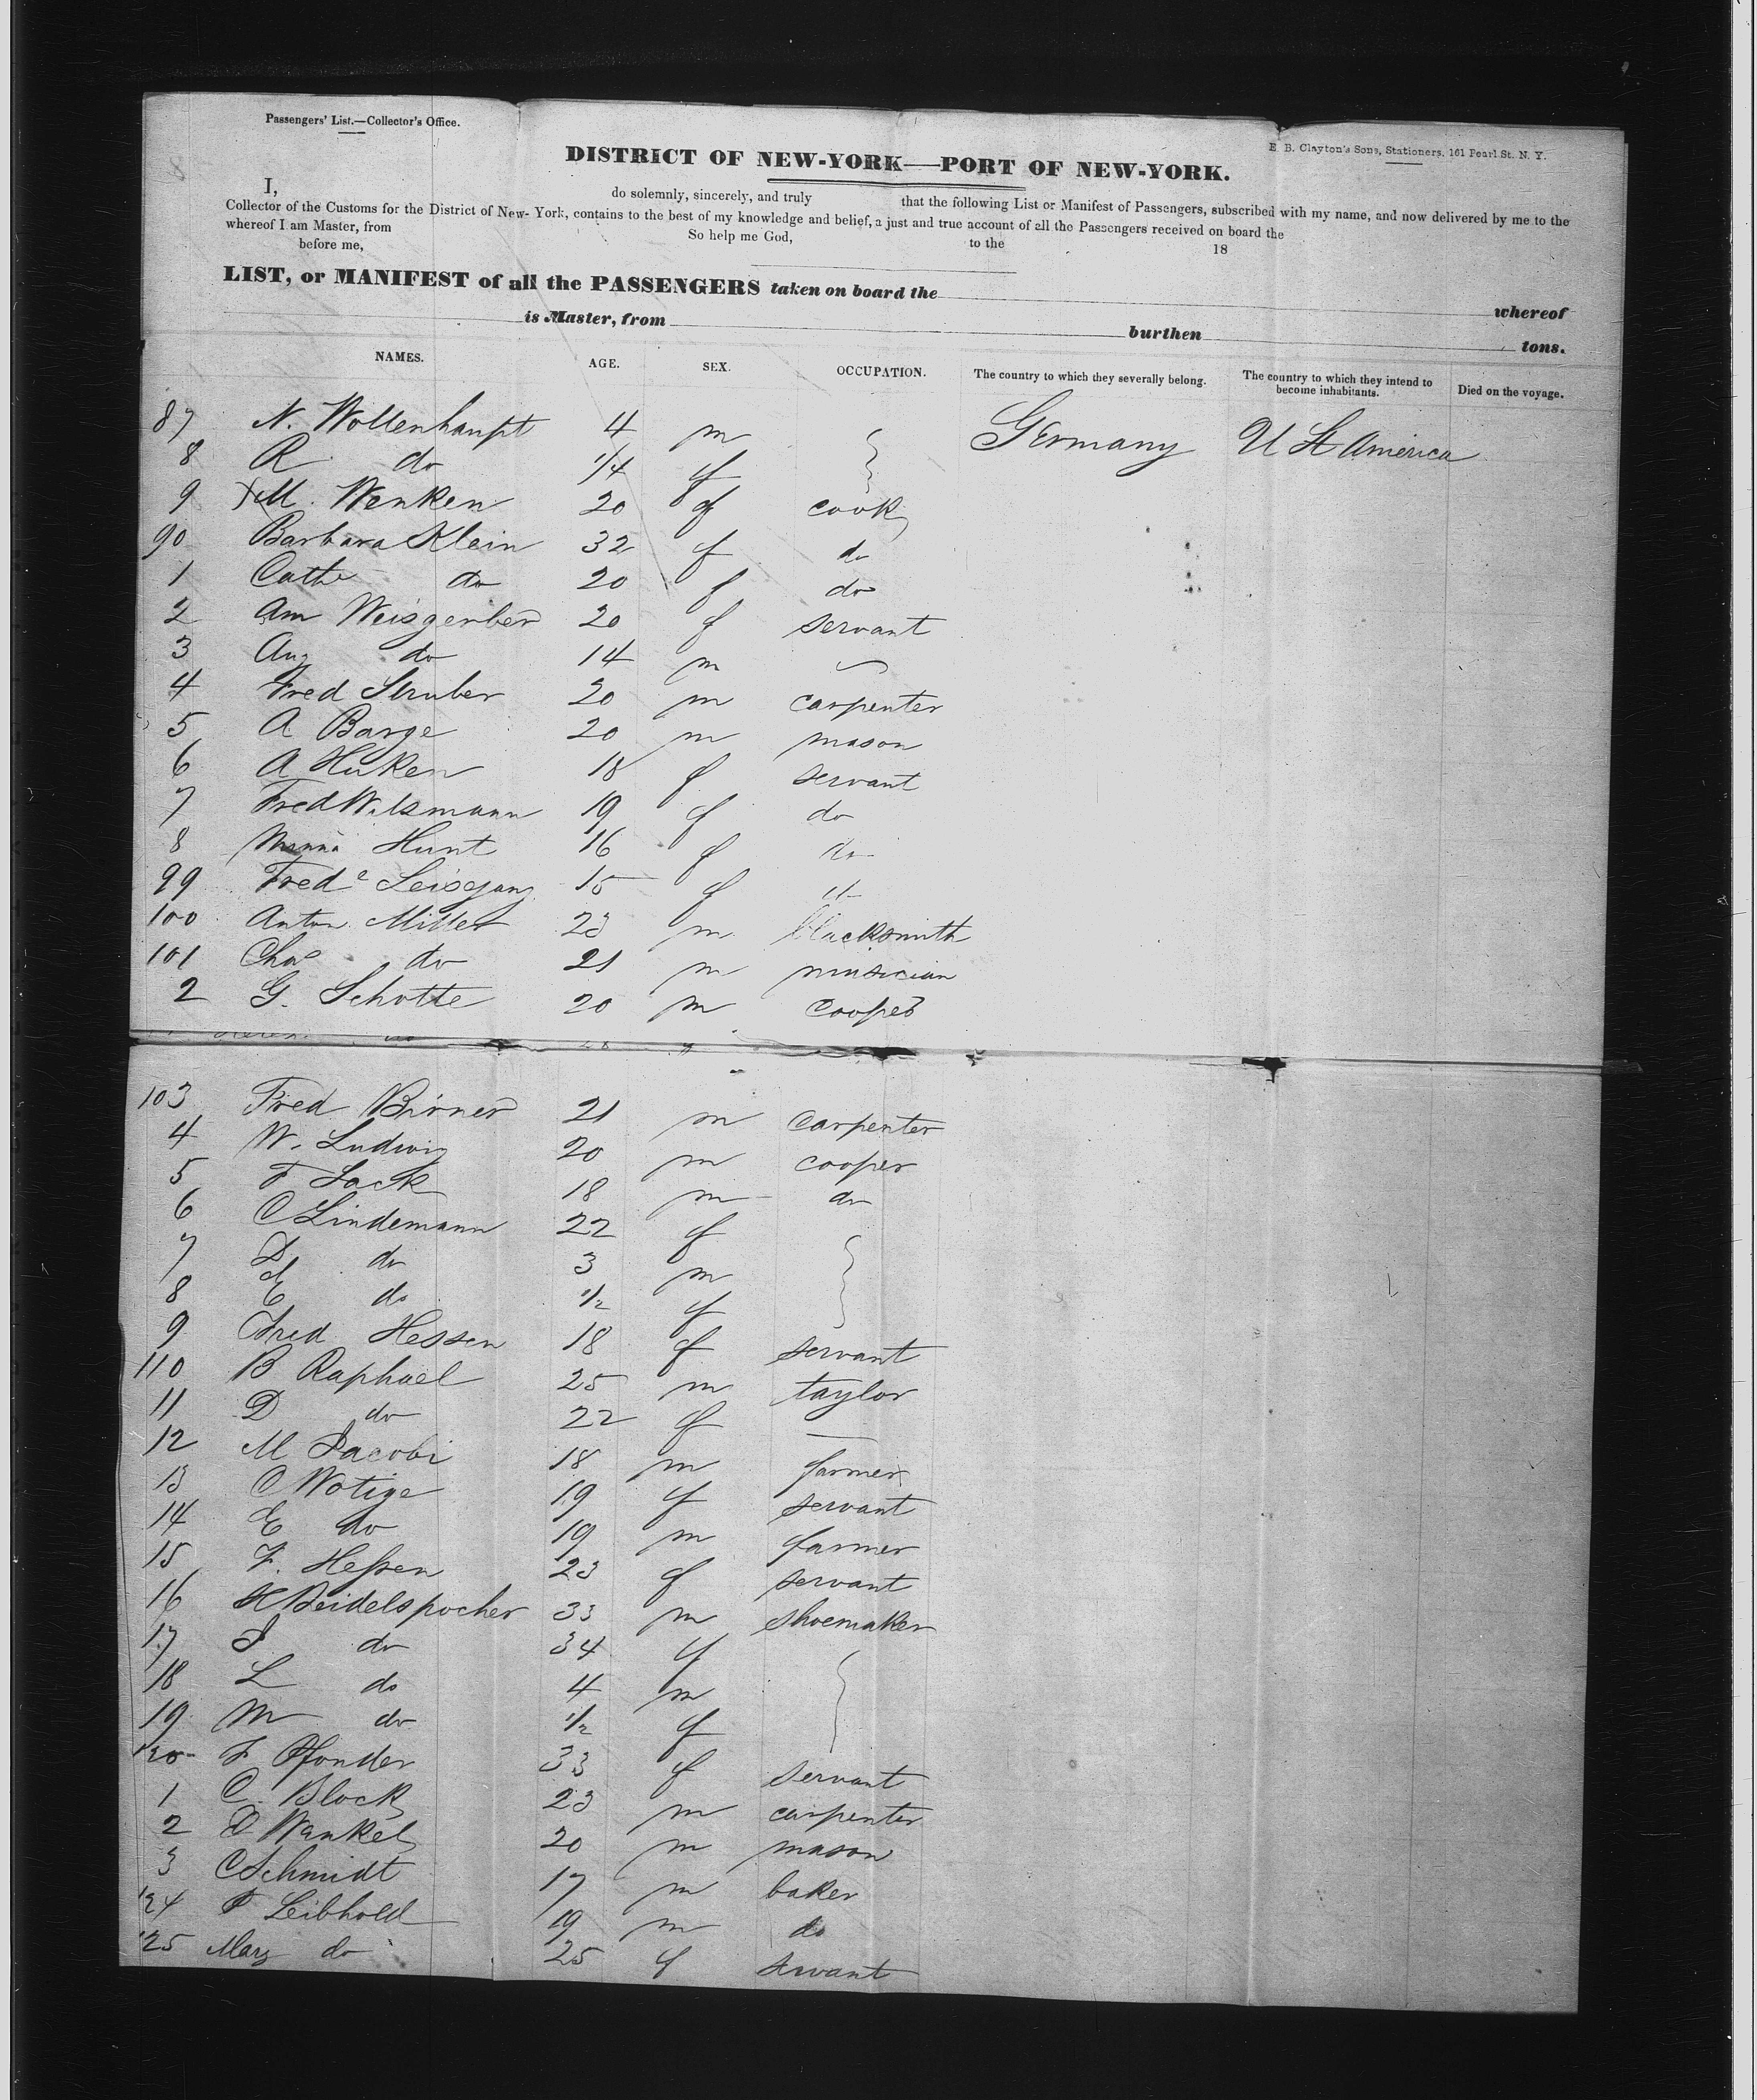 Passengers' List.—Collector's Office.
E. B. Clayton's Sons, Stationers, 161 Pearl St. N. Y.
DISTRICT OF NEW-YORK—PORT OF NEW-YORK.
I, do solemnly, sincerely, and truly that the following List or Manifest of Passengers, subscribed with my name, and now delivered by me to the
Collector of the Customs for the District of New-York, contains to the best of my knowledge and belief, a just and true account of all the Passengers received on board the
whereof I am Master, from So help me God, to the 18
before me,
LIST, or MANIFEST of all the PASSENGERS taken on board the whereof
is Master, from burthen tons.
NAMES. AGE. SEX. OCCUPATION. The country to which they severally belong. The country to which they intend to become inhabitants. Died on the voyage.
87 N. Wollenhaupt 4 m Germany U St America
8 R do 1/4 f
9 M. Wenken 20 f cook
90 Barbara Klein 32 f do
1 Cathe do 20 f do
2 Am Weisgerber 20 f servant
3 Aug do 14 m
4 Fred Struber 20 m carpenter
5 A Barge 20 m mason
6 A Huken 18 f servant
7 Fred Wilsmann 19 f do
8 Minna Hunt 16 f do
99 Frede Leisegang 15 f do
100 Anton Miller 23 m blacksmith
101 Chas do 21 m musician
2 G. Schotte 20 m cooper
103 Fred Birner 21 m carpenter
4 W. Ludwig 20 m cooper
5 F Sack 18 m do
6 C Lindemann 22 f
7 L do 3 m
8 E do 1/2 f
9 Fred Hessen 18 f servant
110 B Raphael 25 m taylor
11 D do 22 f —
12 M Jacobi 18 m farmer
13 C Wotige 19 f servant
14 E do 19 m farmer
15 F. Hessen 23 f servant
16 H Beidelspocher 33 m shoemaker
17 J do 34 f
18 L do 4 m
19 M do 1/2 f
120 F Pfonder 33 f servant
1 C. Block 23 m carpenter
2 E Wankel 20 m mason
3 C Schmidt 17 m baker
124 F Leibhold 19 m do
125 Mary do 25 f servant